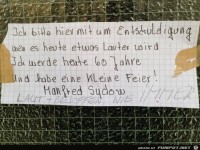 Ich bitte hiermit um Entschuldigung
wen es heute etwas Lauter wird
Ich werde heute 60 Jahre
Und habe eine Kleine Feier!
Manfred Sydow
LAUT
UNS IMMER